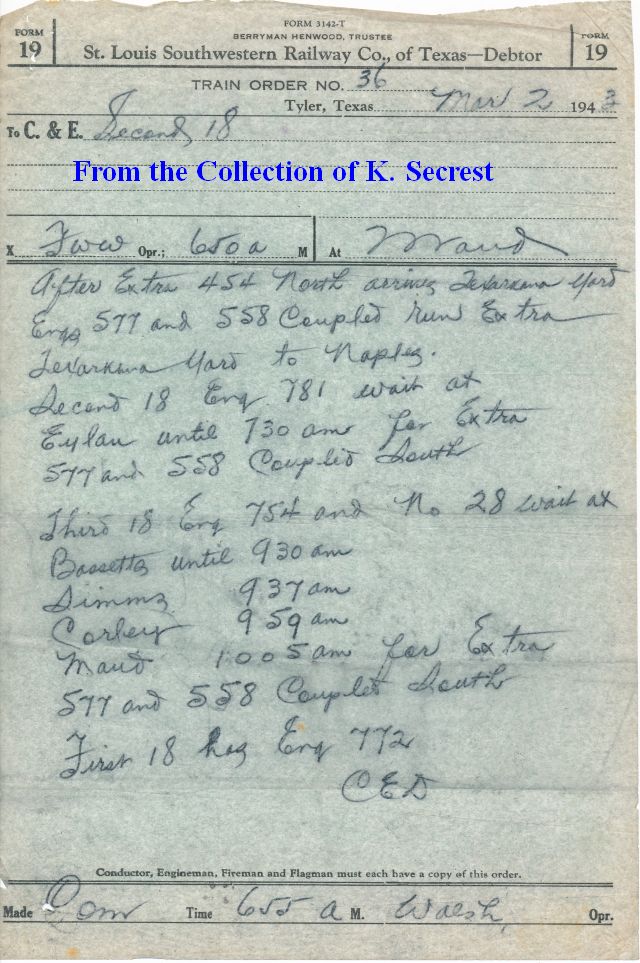 FORM 3142-T
FORM 19
BERRYMAN HENWOOD, TRUSTEE
St. Louis Southwestern Railway Co., of Texas—Debtor
FORM 19
TRAIN ORDER NO. 36
Tyler, Texas Mar 2 1943
To C. & E. Second 18
From the Collection of K. Secrest
X Opr.; 650 a M At Maud
After Extra 454 North arrives Texarkana Yard
Engs 577 and 558 Coupled run Extra
Texarkana Yard to Naples.
Second 18 Eng 781 wait at
Eylau until 730 am for Extra
577 and 558 Coupled South
Third 18 Eng 754 and No 28 wait at
Bassetts until 930 am
Simms 937 am
Corley 959 am
Maud 1005 am for Extra
577 and 558 Coupled South
First 18 has Eng 772
CED
Conductor, Engineman, Fireman and Flagman must each have a copy of this order.
Made Com Time 655 a M. Walsh Opr.